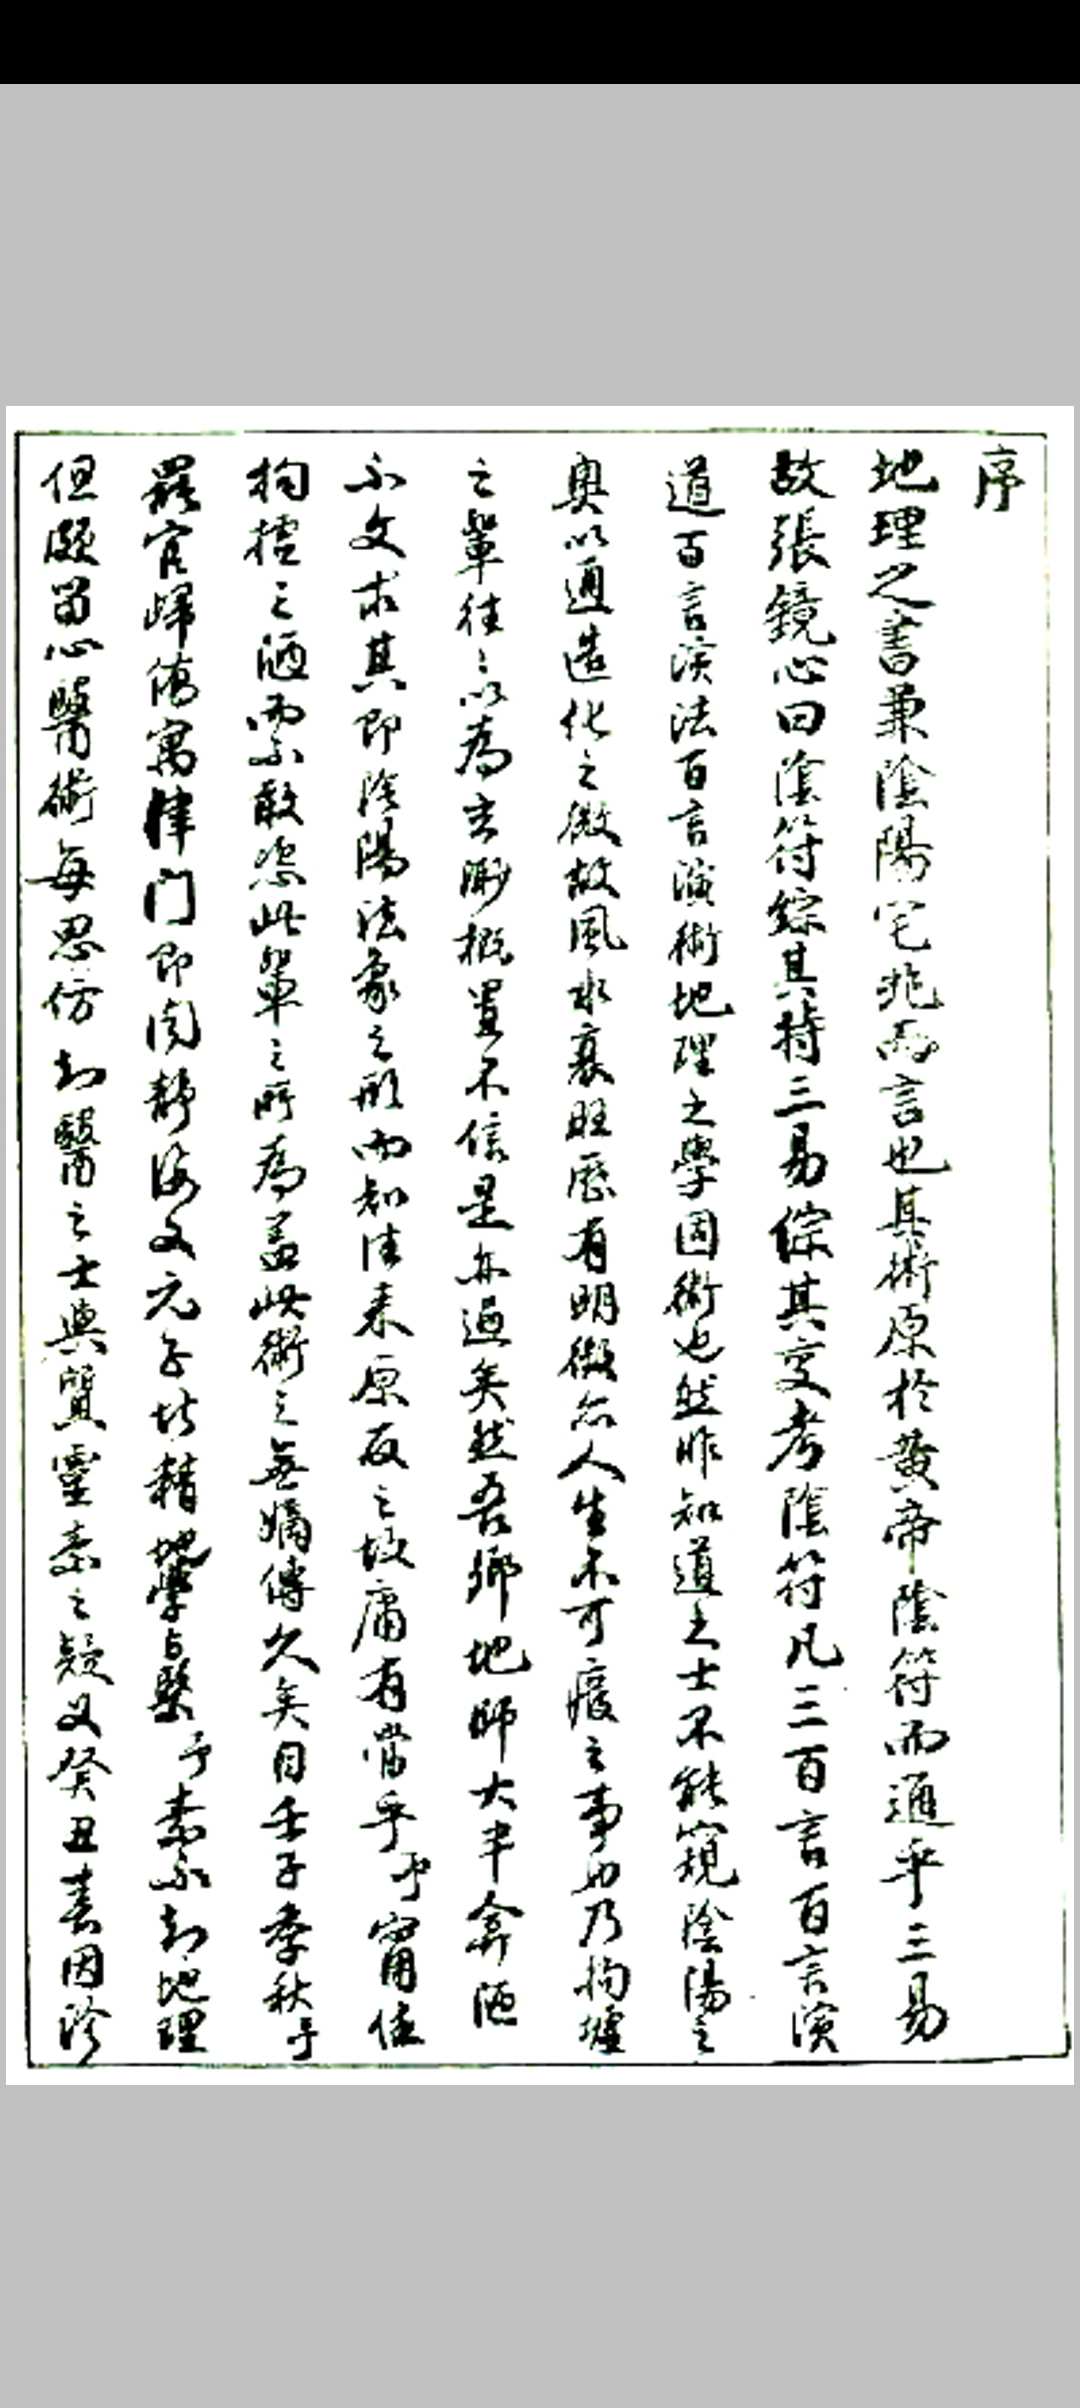 序
地理之書兼陰陽宅兆而言也其術原於黃帝陰符而通乎三易
故張鏡心曰陰符綜其特三易綜其変考陰符凡三百言百言演
道百言演法百言演術地理之學固術也然非知道之士不能窺陰陽之
奧以通造化之微故風水衰旺歷有明徵為人生不可廢之事也乃拘墟
之輩往々以為玄眇概置不信是亦過矣然吾鄉地師大半弇陋
不文求其即陰陽法象之形而知往来原反之故庸有當乎予甯任
拘墟之陋而不敢恣此輩之所為盖此術之無嫡傳久矣自壬子季秋予
罷官歸僑寓津门即闻靜海文元子墳精地學与醫予素不知地理
但頗留心醫術每思仿知醫之士與質靈素之疑义癸丑春因診